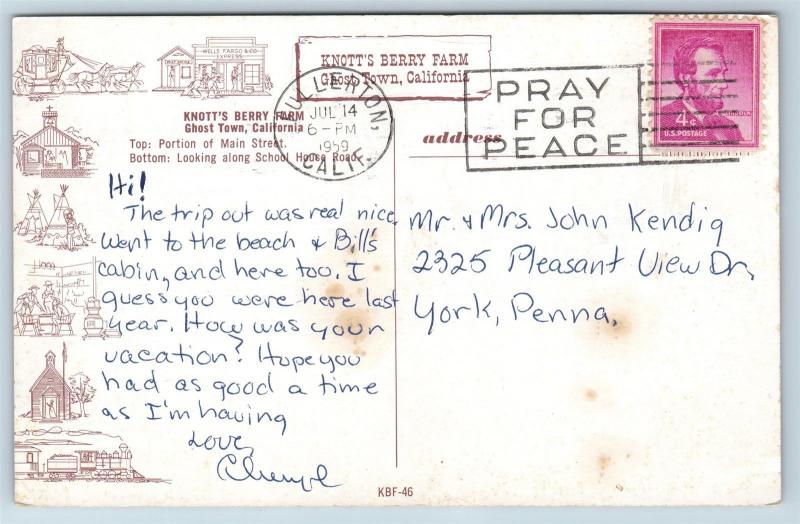 WELLS FARGO & CO
EXPRESS
KNOTT'S BERRY FARM
Ghost Town, California
KNOTT'S BERRY FARM
Ghost Town, California
Top: Portion of Main Street.
Bottom: Looking along School House Road.
FULLERTON,
JUL 14
6-PM
1959
CALIF.
PRAY
FOR
PEACE
LINCOLN
4¢
U.S. POSTAGE
address
Hi!
The trip out was real nice.
Went to the beach & Bill's
cabin, and here too. I
guess you were here last
year. How was your
vacation? Hope you
had as good a time
as I'm having
Love,
Cheryl
Mr. & Mrs. John Kendig
2325 Pleasant View Dr,
York, Penna,
KBF-46